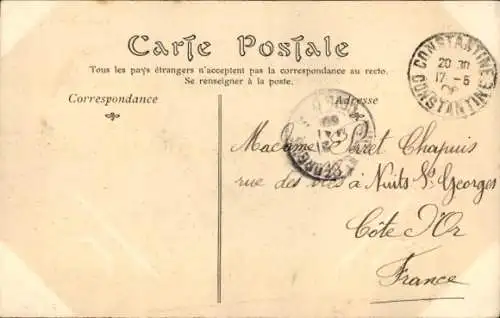 Carte Postale
Tous les pays étrangers n'acceptent pas la correspondance au recto.
Se renseigner à la poste.
Correspondance
Adresse
CONSTANTINE
20 30
17 - 5
CONSTANTINE
Madame Chapuis
rue des à Nuits St Georges
Côte d'Or
France